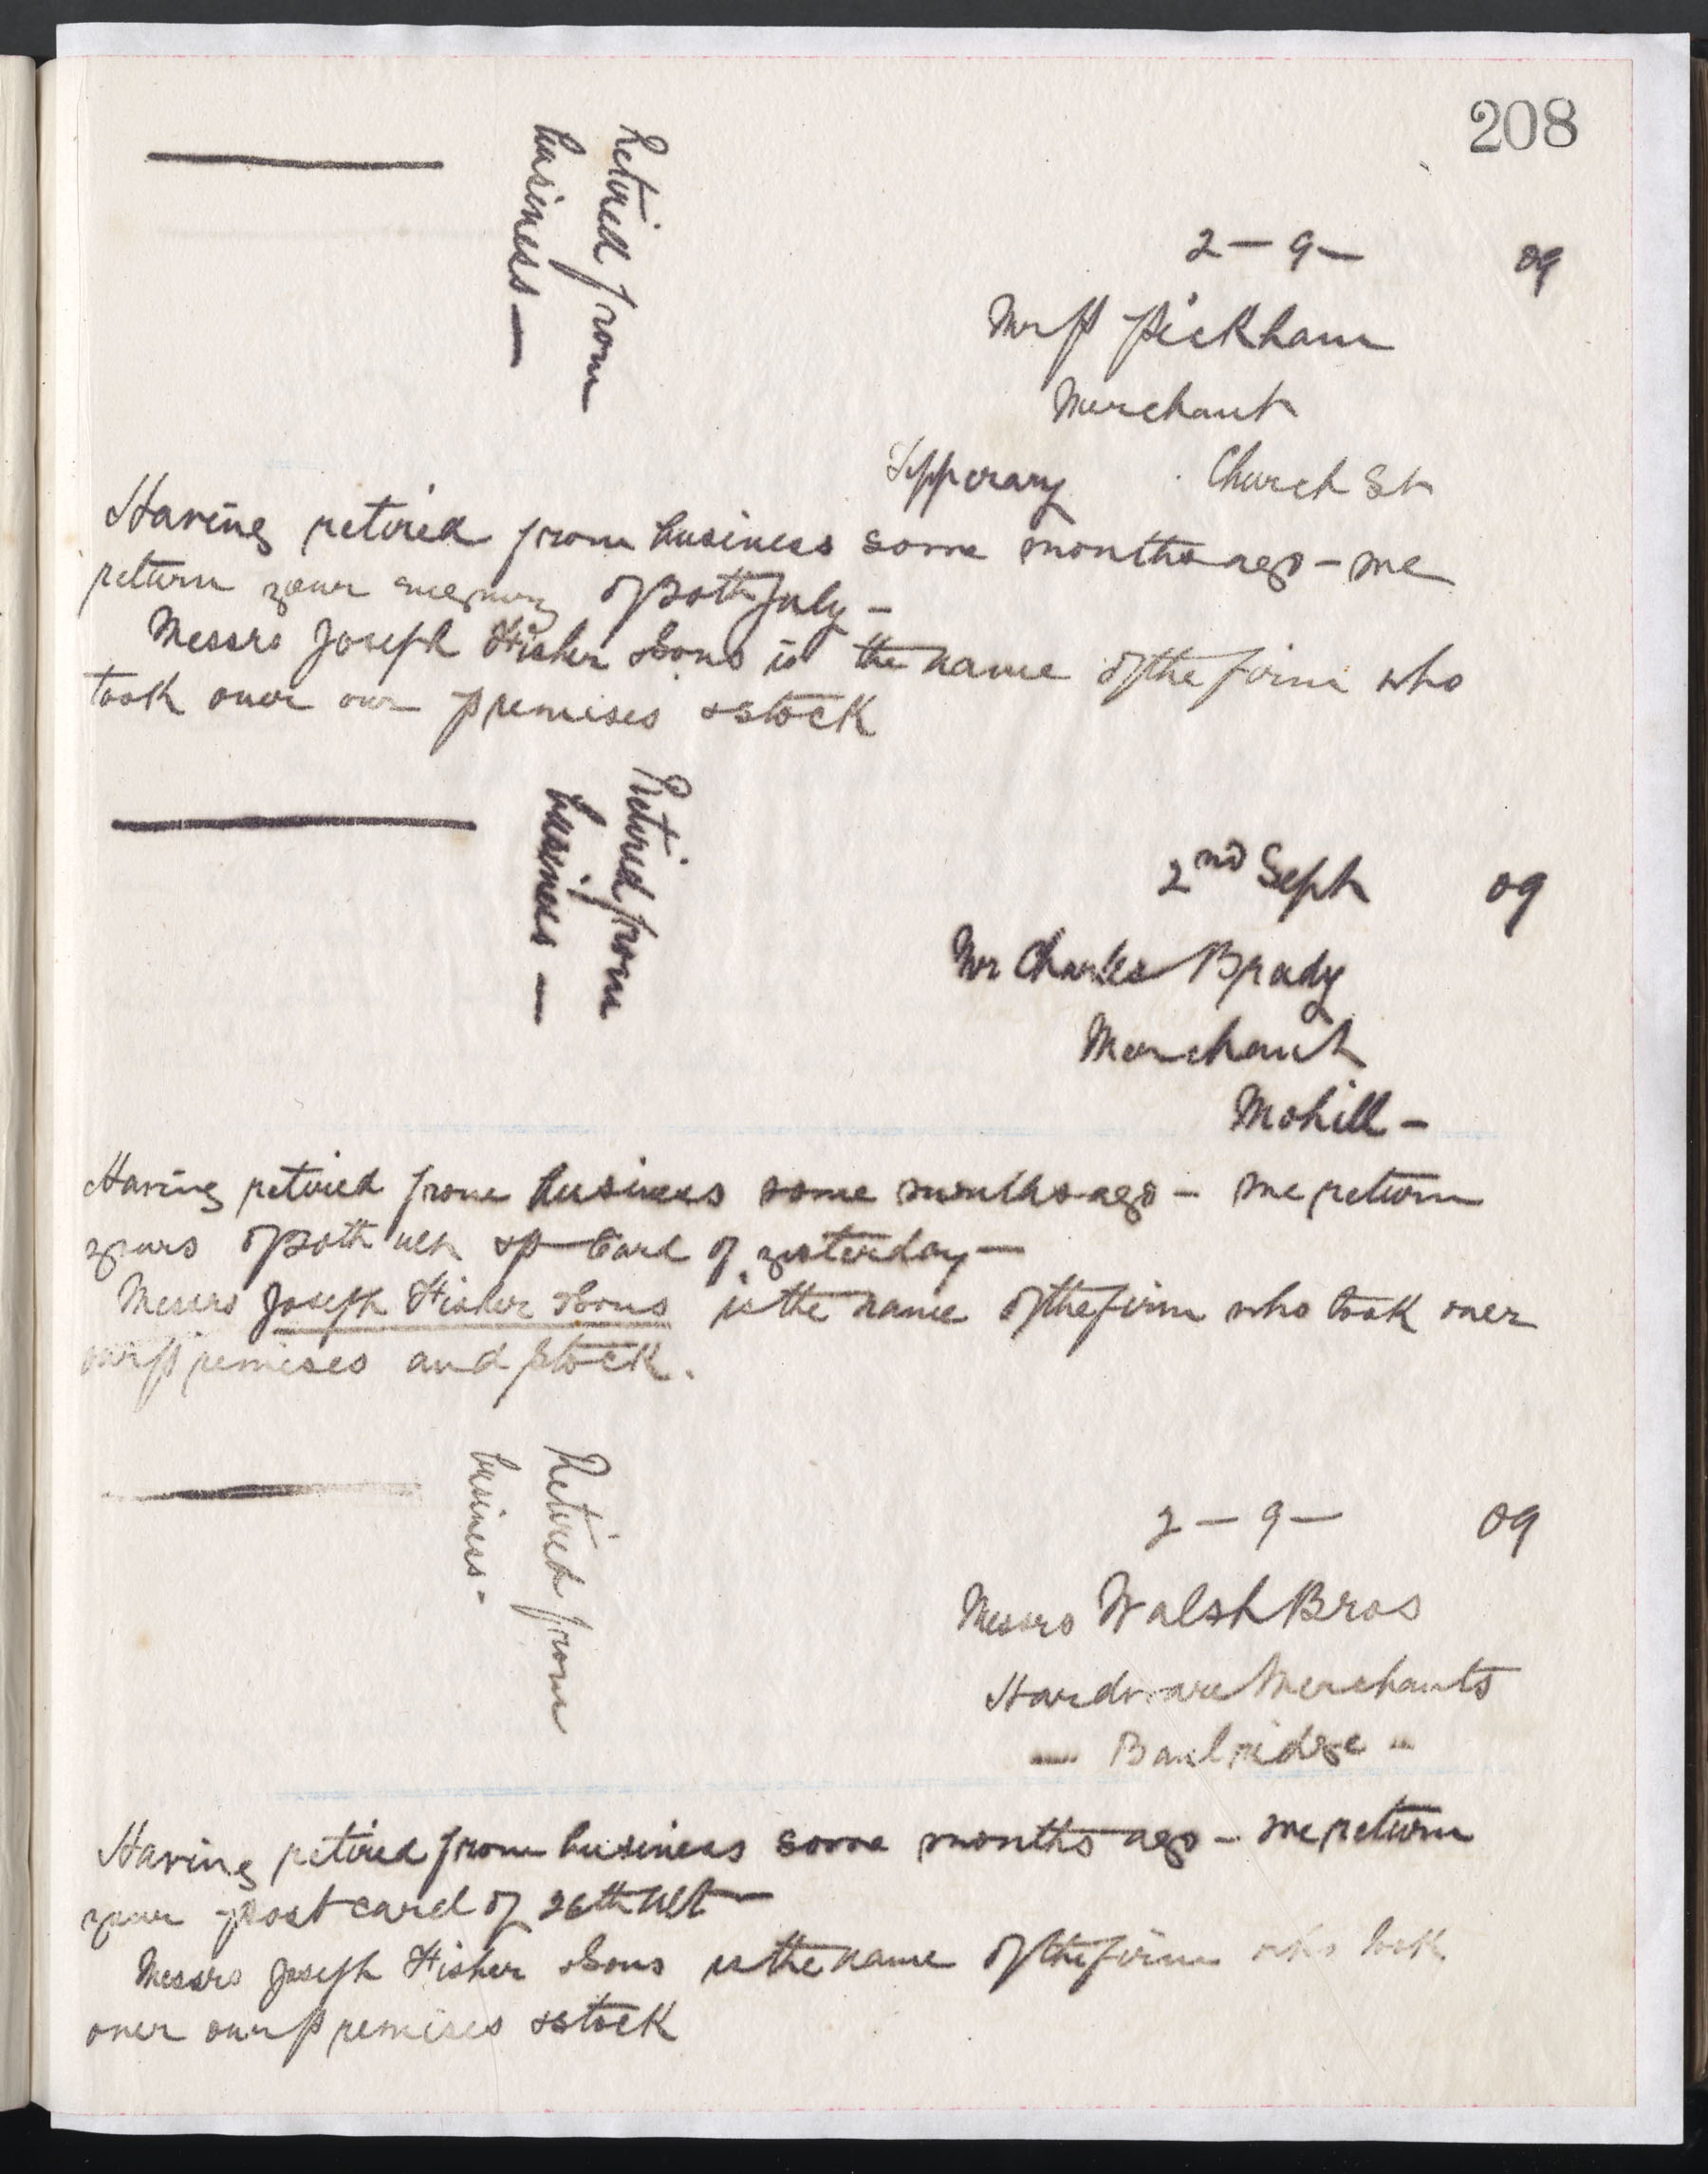 208
Retired from
business —
2 — 9 — 09
Mr P Pickham
Merchant
Tipperary Church St
Having retired from business some months ago — we
return your enquiry of 30th July —
Messrs Joseph Fisher & Sons is the name of the firm who
took over our premises & stock
Retired from
business —
2nd Sept 09
Mr Charles Brady
Merchant
Mohill —
Having retired from business some months ago — we return
yours of 30th ult & P Card of yesterday —
Messrs Joseph Fisher & Sons is the name of the firm who took over
our premises and stock.
Retired from
business -
2 — 9 — 09
Messrs Walsh Bros
Hardware Merchants
— Banbridge —
Having retired from business some months ago — we return
your post card of 26th Ult —
Messrs Joseph Fisher & Sons is the name of the firm who took
over our premises & stock